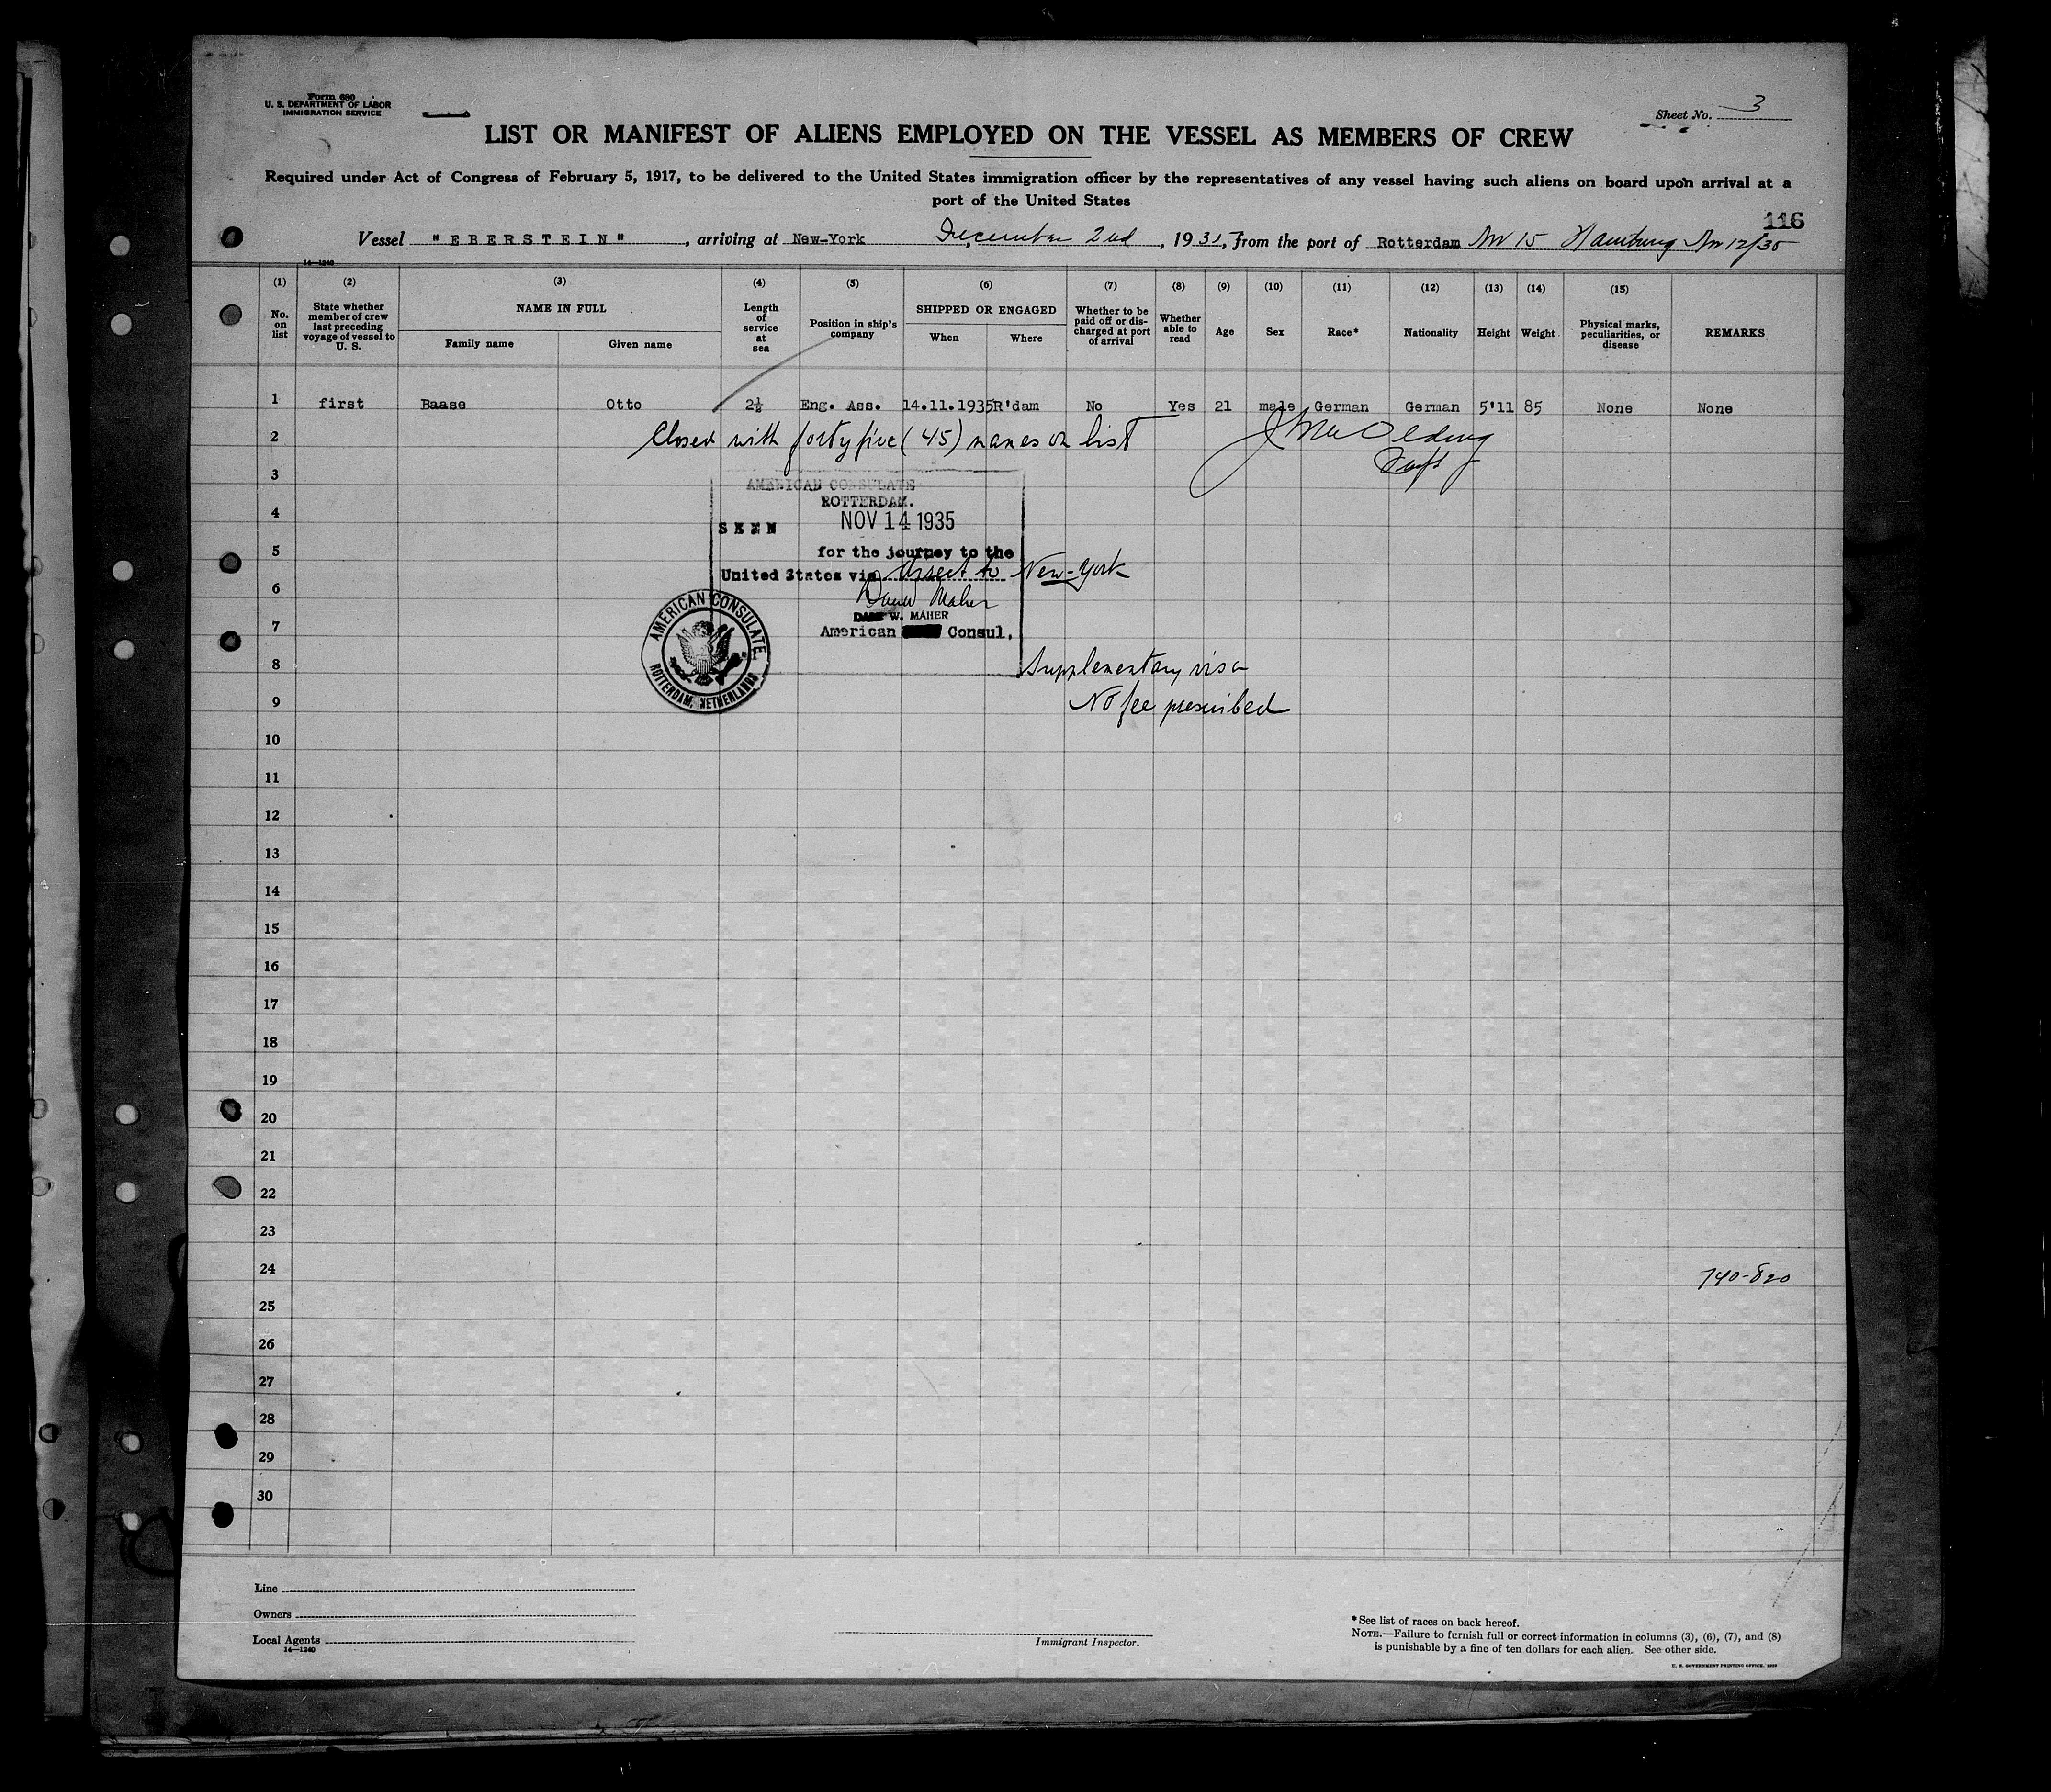 Form 680
U. S. DEPARTMENT OF LABOR
IMMIGRATION SERVICE
Sheet No. 3
LIST OR MANIFEST OF ALIENS EMPLOYED ON THE VESSEL AS MEMBERS OF CREW
Required under Act of Congress of February 5, 1917, to be delivered to the United States immigration officer by the representatives of any vessel having such aliens on board upon arrival at a
port of the United States
116
Vessel "EBERSTEIN", arriving at New-York December 2nd, 193 , from the port of Rotterdam Nov 15 Hamburg Nov 12/35
14—1240
(1) (2) (3) (4) (5) (6) (7) (8) (9) (10) (11) (12) (13) (14) (15)
No. on list
State whether member of crew last preceding voyage of vessel to U. S.
NAME IN FULL
Family name
Given name
Length of service at sea
Position in ship's company
SHIPPED OR ENGAGED
When
Where
Whether to be paid off or discharged at port of arrival
Whether able to read
Age
Sex
Race*
Nationality
Height
Weight
Physical marks, peculiarities, or disease
REMARKS
1 first Baase Otto 2½ Eng. Ass. 14.11.1935 R'dam No Yes 21 male German German 5'11 85 None None
2 Closed with forty five (45) names on list
3
AMERICAN CONSULATE
ROTTERDAM.
4
SEEN NOV 14 1935
5
for the journey to the
United States via direct to New-York
6
W. MAHER
7
American Consul.
AMERICAN CONSULATE
ROTTERDAM, NETHERLANDS
8 Supplementary visa
9 No fee prescribed
10
11
12
13
14
15
16
17
18
19
20
21
22
23
24 740-820
25
26
27
28
29
30
Line
Owners
Local Agents
14—1240
Immigrant Inspector.
*See list of races on back hereof.
NOTE.—Failure to furnish full or correct information in columns (3), (6), (7), and (8)
is punishable by a fine of ten dollars for each alien. See other side.
U. S. GOVERNMENT PRINTING OFFICE: 1929